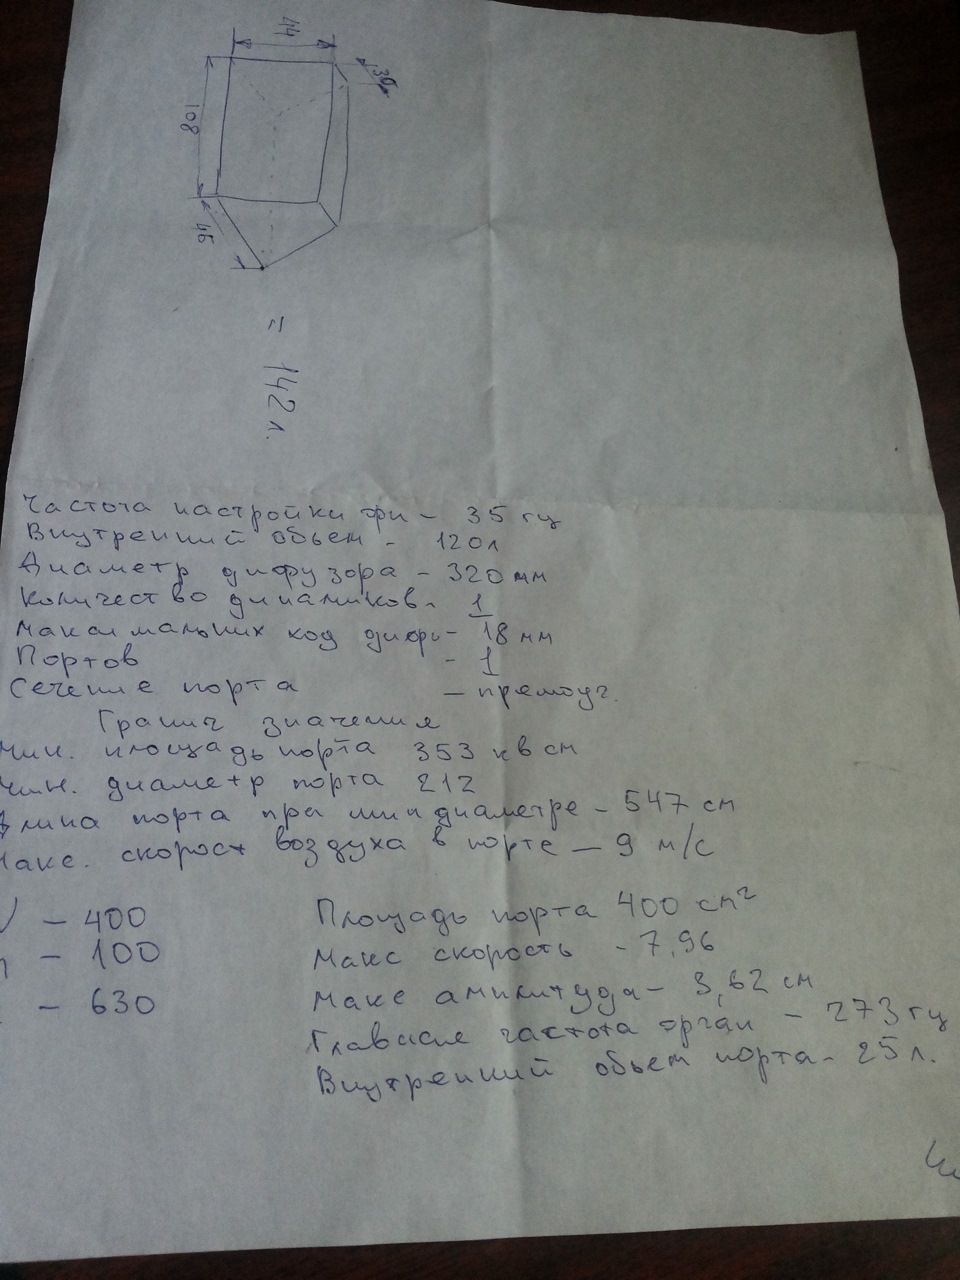 44
39
108
46
= 142 л.
Частота настройки фи - 35 гц
Внутренний обьем - 120л
Диаметр дифузора - 320 мм
Количество динамиков - 1
Максимальних ход дифф - 18 мм
Портов - 1
Сечение порта - прямоуг.
Гранич значения
мин. площадь порта 353 кв см
мин. диаметр порта 212
Длина порта при мин диаметре - 547 см
Макс. скорост воздуха в порте - 9 м/с
- 400
- 100
- 630
Площадь порта 400 см²
Макс скорость - 7,96
Макс амплитуда - 3,62 см
Главная частота орган - 273 гц
Внутренний обьем порта - 25 л.